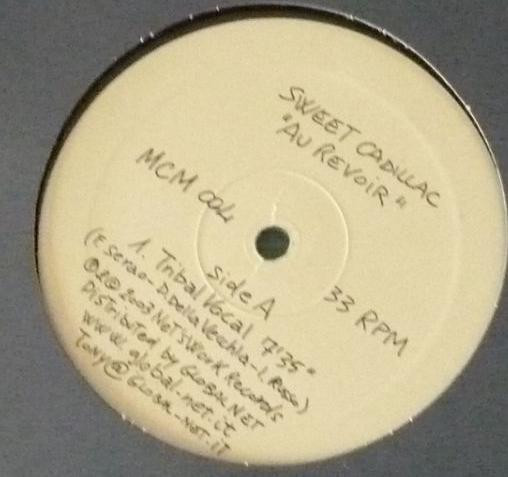 SWEET CADILLAC
"AU REVOIR"
MCM 004
33 RPM
side A
1. Tribal Vocal 7'35"
(E Serao - D. Della Vecchia - L. Rosso)
2003 NETSWORK Records
Distributed by GLOBAL NET
www.global-net.it
Tony@GLOBAL-NET.IT